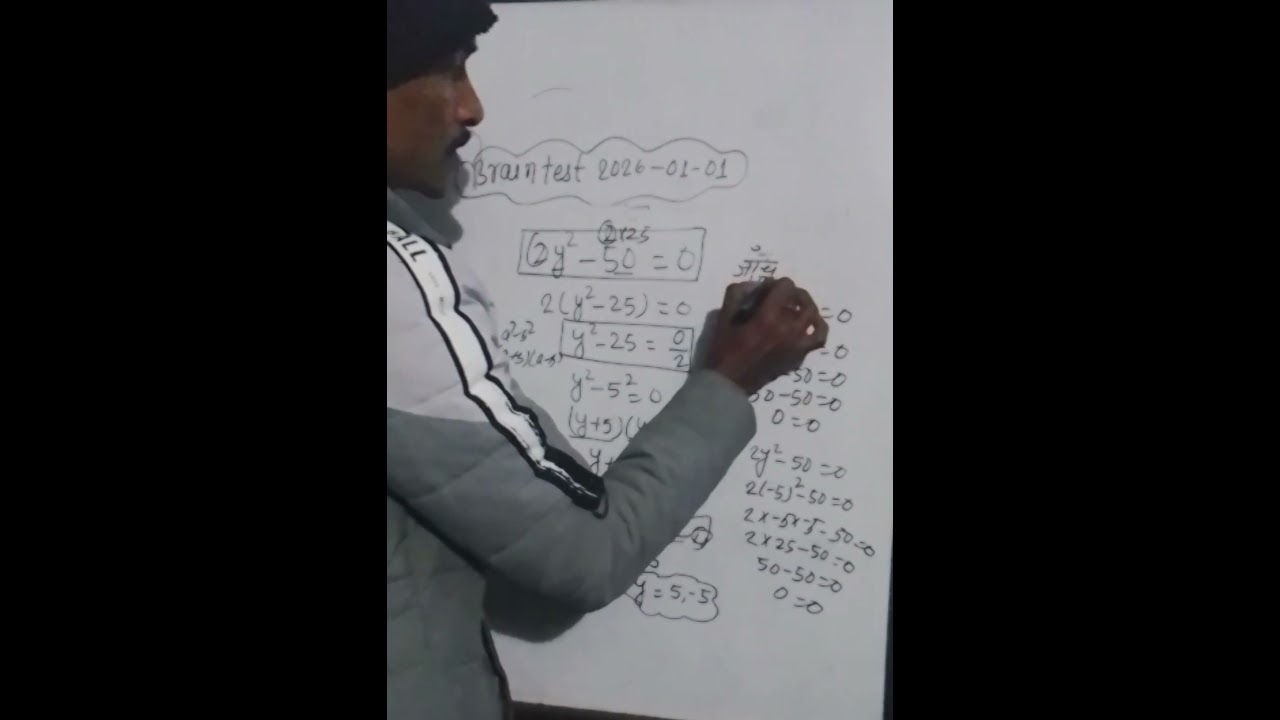 Brain test 2026-01-01
2×25
2y² - 50 = 0
2(y² - 25) = 0
a²-b²
y² - 25 = 0/2
y² - 5² = 0
(y+5)(
y+
y = 5, -5
जाँच
= 0
- 0
50 = 0
50 - 50 = 0
0 = 0
2y² - 50 = 0
2(-5)² - 50 = 0
2 × -5 × -5 - 50 = 0
2 × 25 - 50 = 0
50 - 50 = 0
0 = 0
ALL